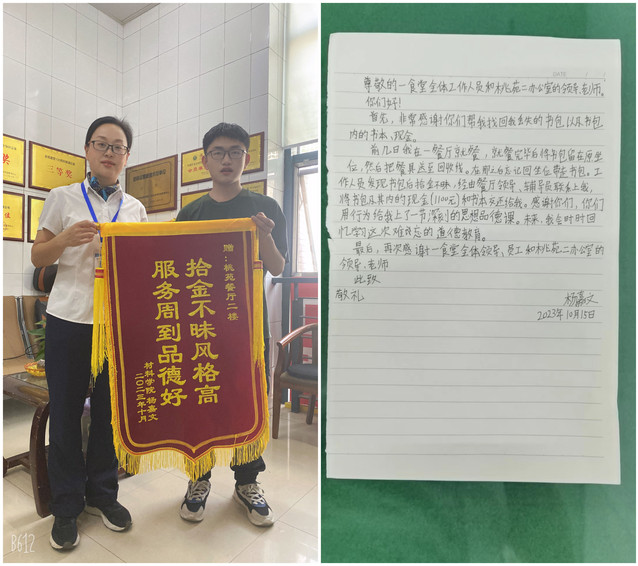 三等奖
赠：桃苑餐厅二楼
拾金不昧风格高
服务周到品德好
材科学院 杨嘉文
二〇二三年十月
B612
DATE
尊敬的一食堂全体工作人员和桃苑二办公室的领导、老师。
你们好！
首先，非常感谢你们帮我找回我丢失的书包以及书包
内的书本、现金。
前几日我在一餐厅就餐，就餐完毕后将书包留在原坐
位，然后把餐具送至回收栈。在那之后忘记回坐位带走书包。工
作人员发现书包后拾金不昧，经由餐厅领导、辅导员联系上我，
将书包及其内的现金(1100元)和书本交还给我。感谢你们，你们
用行为给我上了一节深刻的思想品德课。未来，我会时时回
忆学习这次难以忘的道德教育。
最后，再次感谢一食堂全体领导、员工和桃苑二办公室的
领导、老师
此致
敬礼
杨嘉文
2023年10月15日